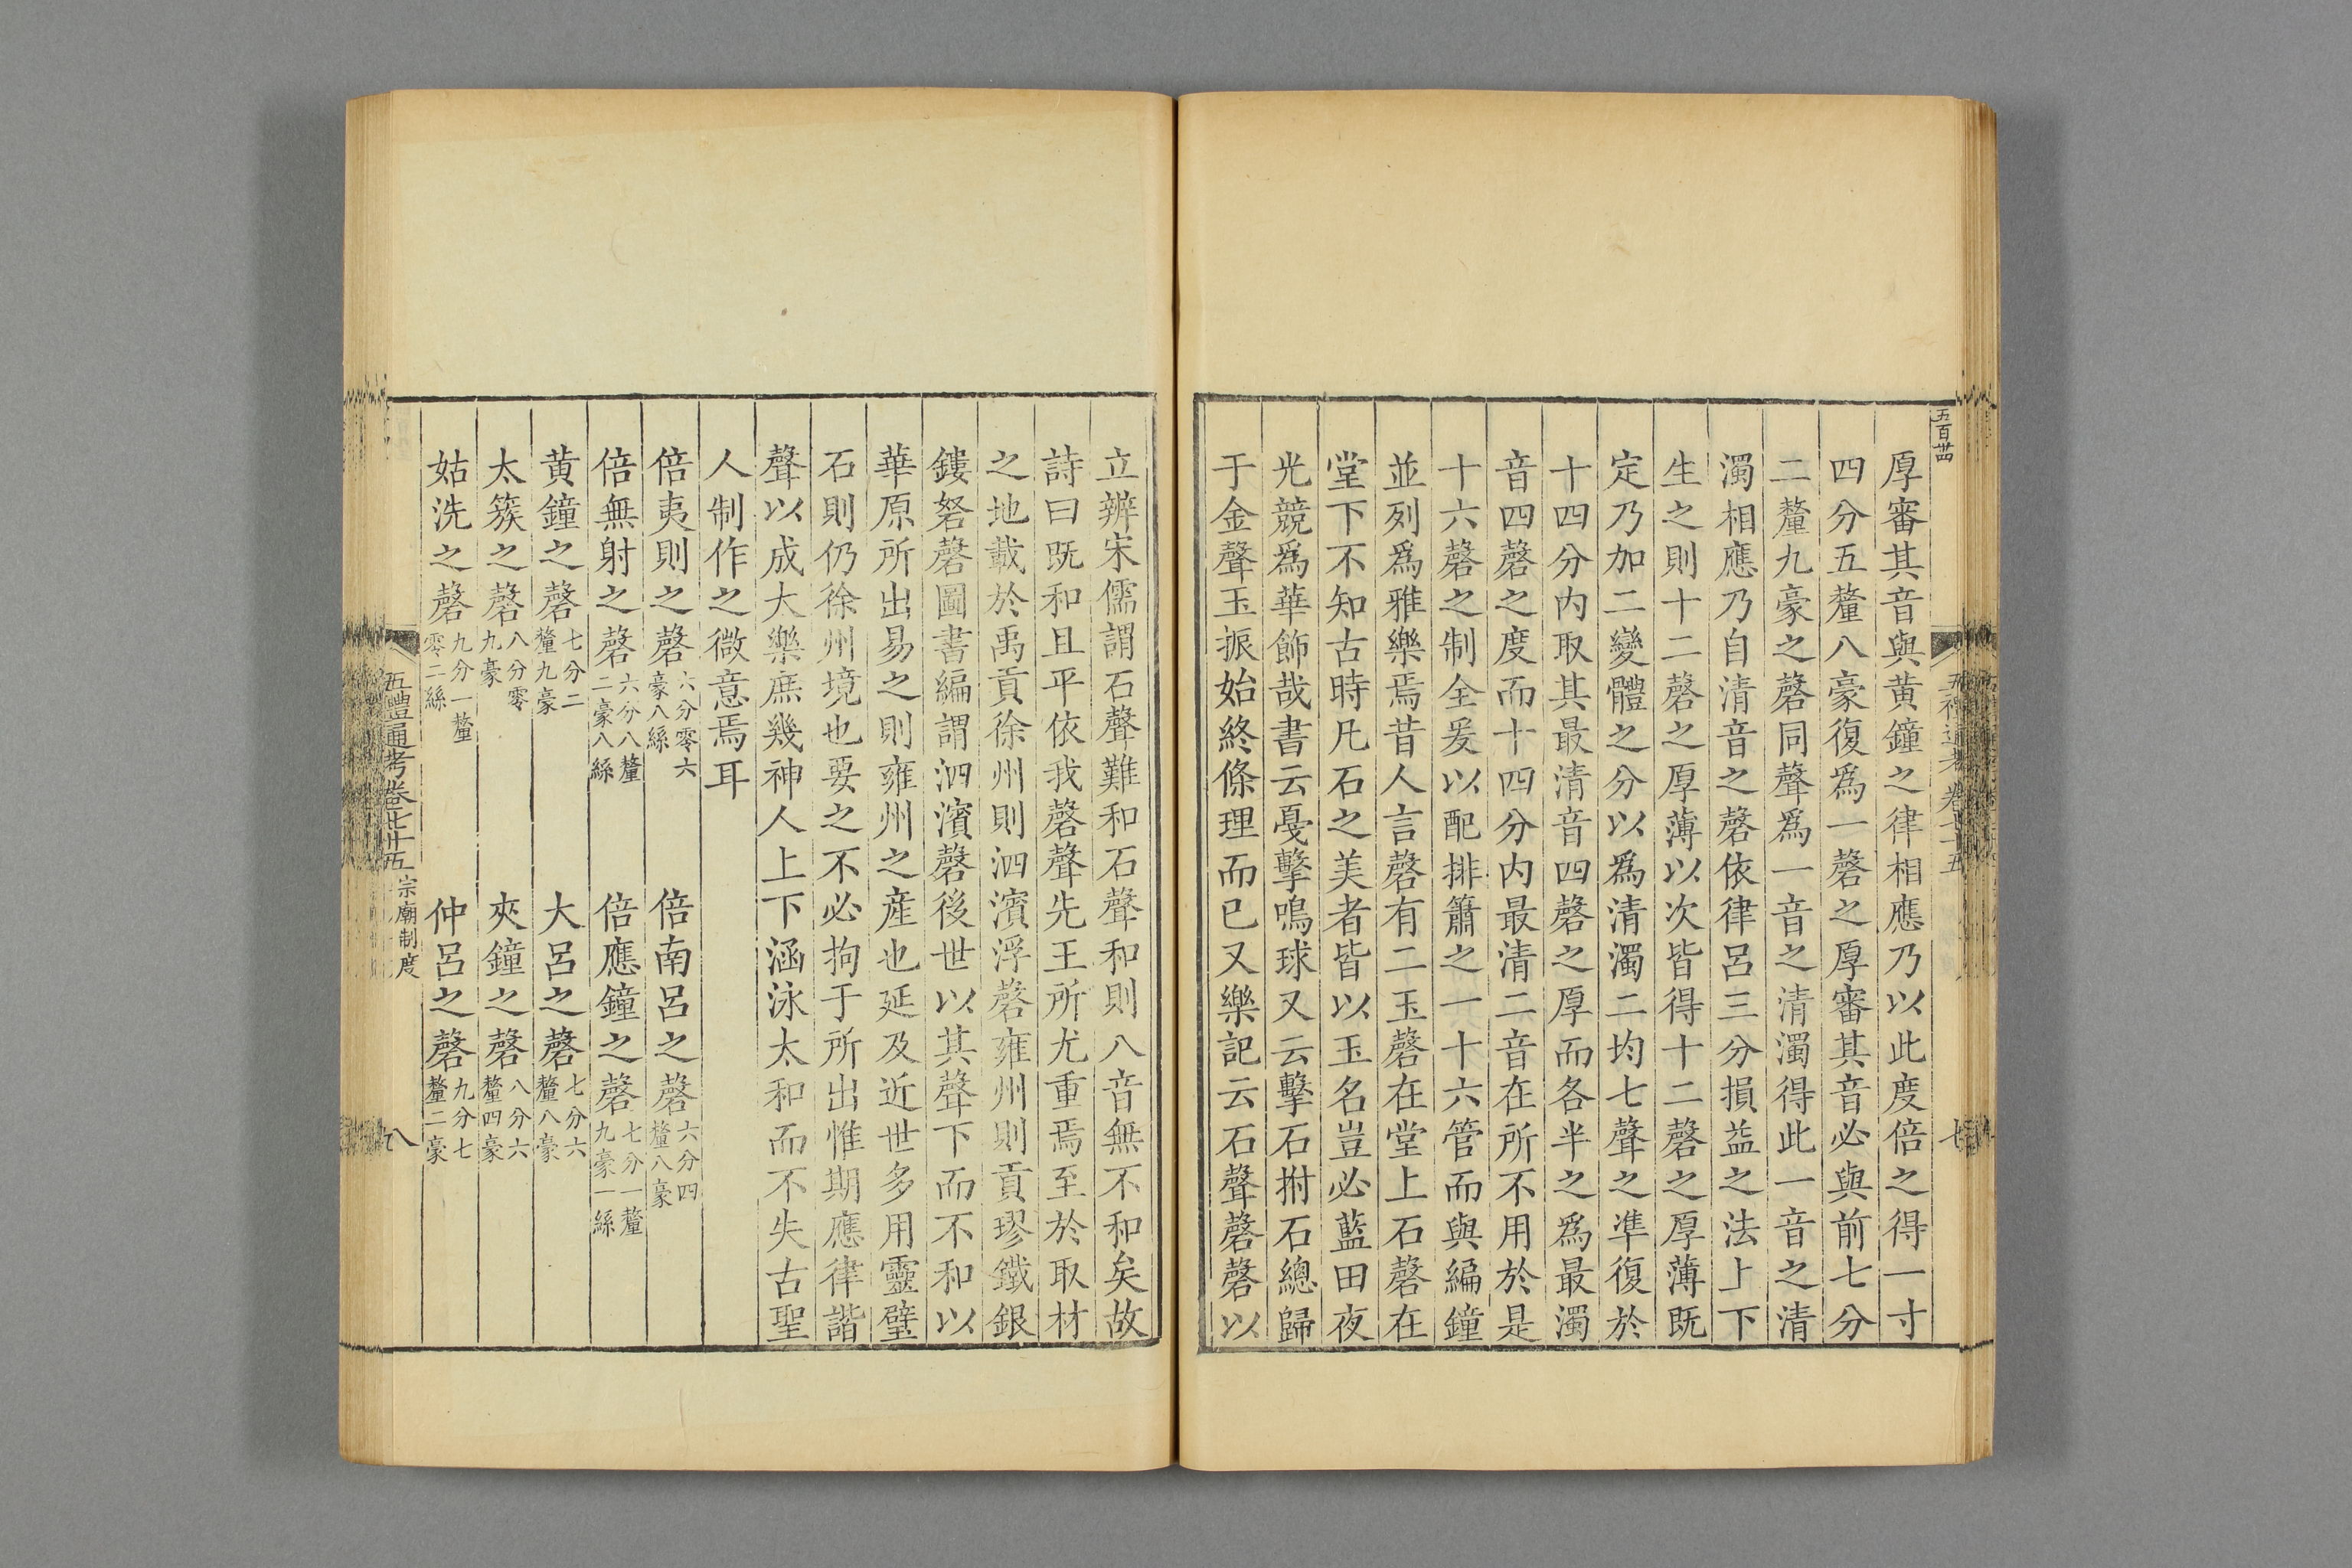 五百苗
厚審其音與黄鐘之律相應乃以此度倍之得一寸
四分五釐八豪復爲一磬之厚審其音必與前七分
二釐九豪之磬同聲爲一音之清濁得此一音之清
濁相應乃自清音之磬依律呂三分損益之法上下
生之則十二磬之厚薄以次皆得十二磬之厚薄既
定乃加二變體之分以爲清濁二均七聲之準復於
十四分内取其最清音四磬之厚而各半之爲最濁
音四磬之度而十四分内最清二音在所不用於是
十六磬之制全爰以配排簫之一十六管而與編鐘
並列爲雅樂焉昔人言磬有二玉磬在堂上石磬在
堂下不知古時凡石之美者皆以玉名豈必藍田夜
光競爲華飾哉書云戛擊鳴球又云擊石拊石總歸
于金聲玉振始終條理而已又樂記云石聲磬磬以
立辨宋儒謂石聲難和石聲和則八音無不和矣故
詩曰既和且平依我磬聲先王所尤重焉至於取材
之地載於禹貢徐州則泗濱浮磬雍州則貢璆鐵銀
鏤砮磬圖書編謂泗濱磬後世以其聲下而不和以
華原所出易之則雍州之産也延及近世多用靈璧
石則仍徐州境也要之不必拘于所出惟期應律諧
聲以成大樂庶幾神人上下涵泳太和而不失古聖
人制作之微意焉耳
倍夷則之磬六分零六豪八絲 倍南呂之磬六分四釐八豪
倍無射之磬六分八釐二豪八絲 倍應鐘之磬七分一釐九豪一絲
黄鐘之磬七分二釐九豪 大呂之磬七分六釐八豪
太簇之磬八分零九豪 夾鐘之磬八分六釐四豪
姑洗之磬九分一釐零二絲 仲呂之磬九分七釐二豪
五禮通考卷七十五 宗廟制度 八